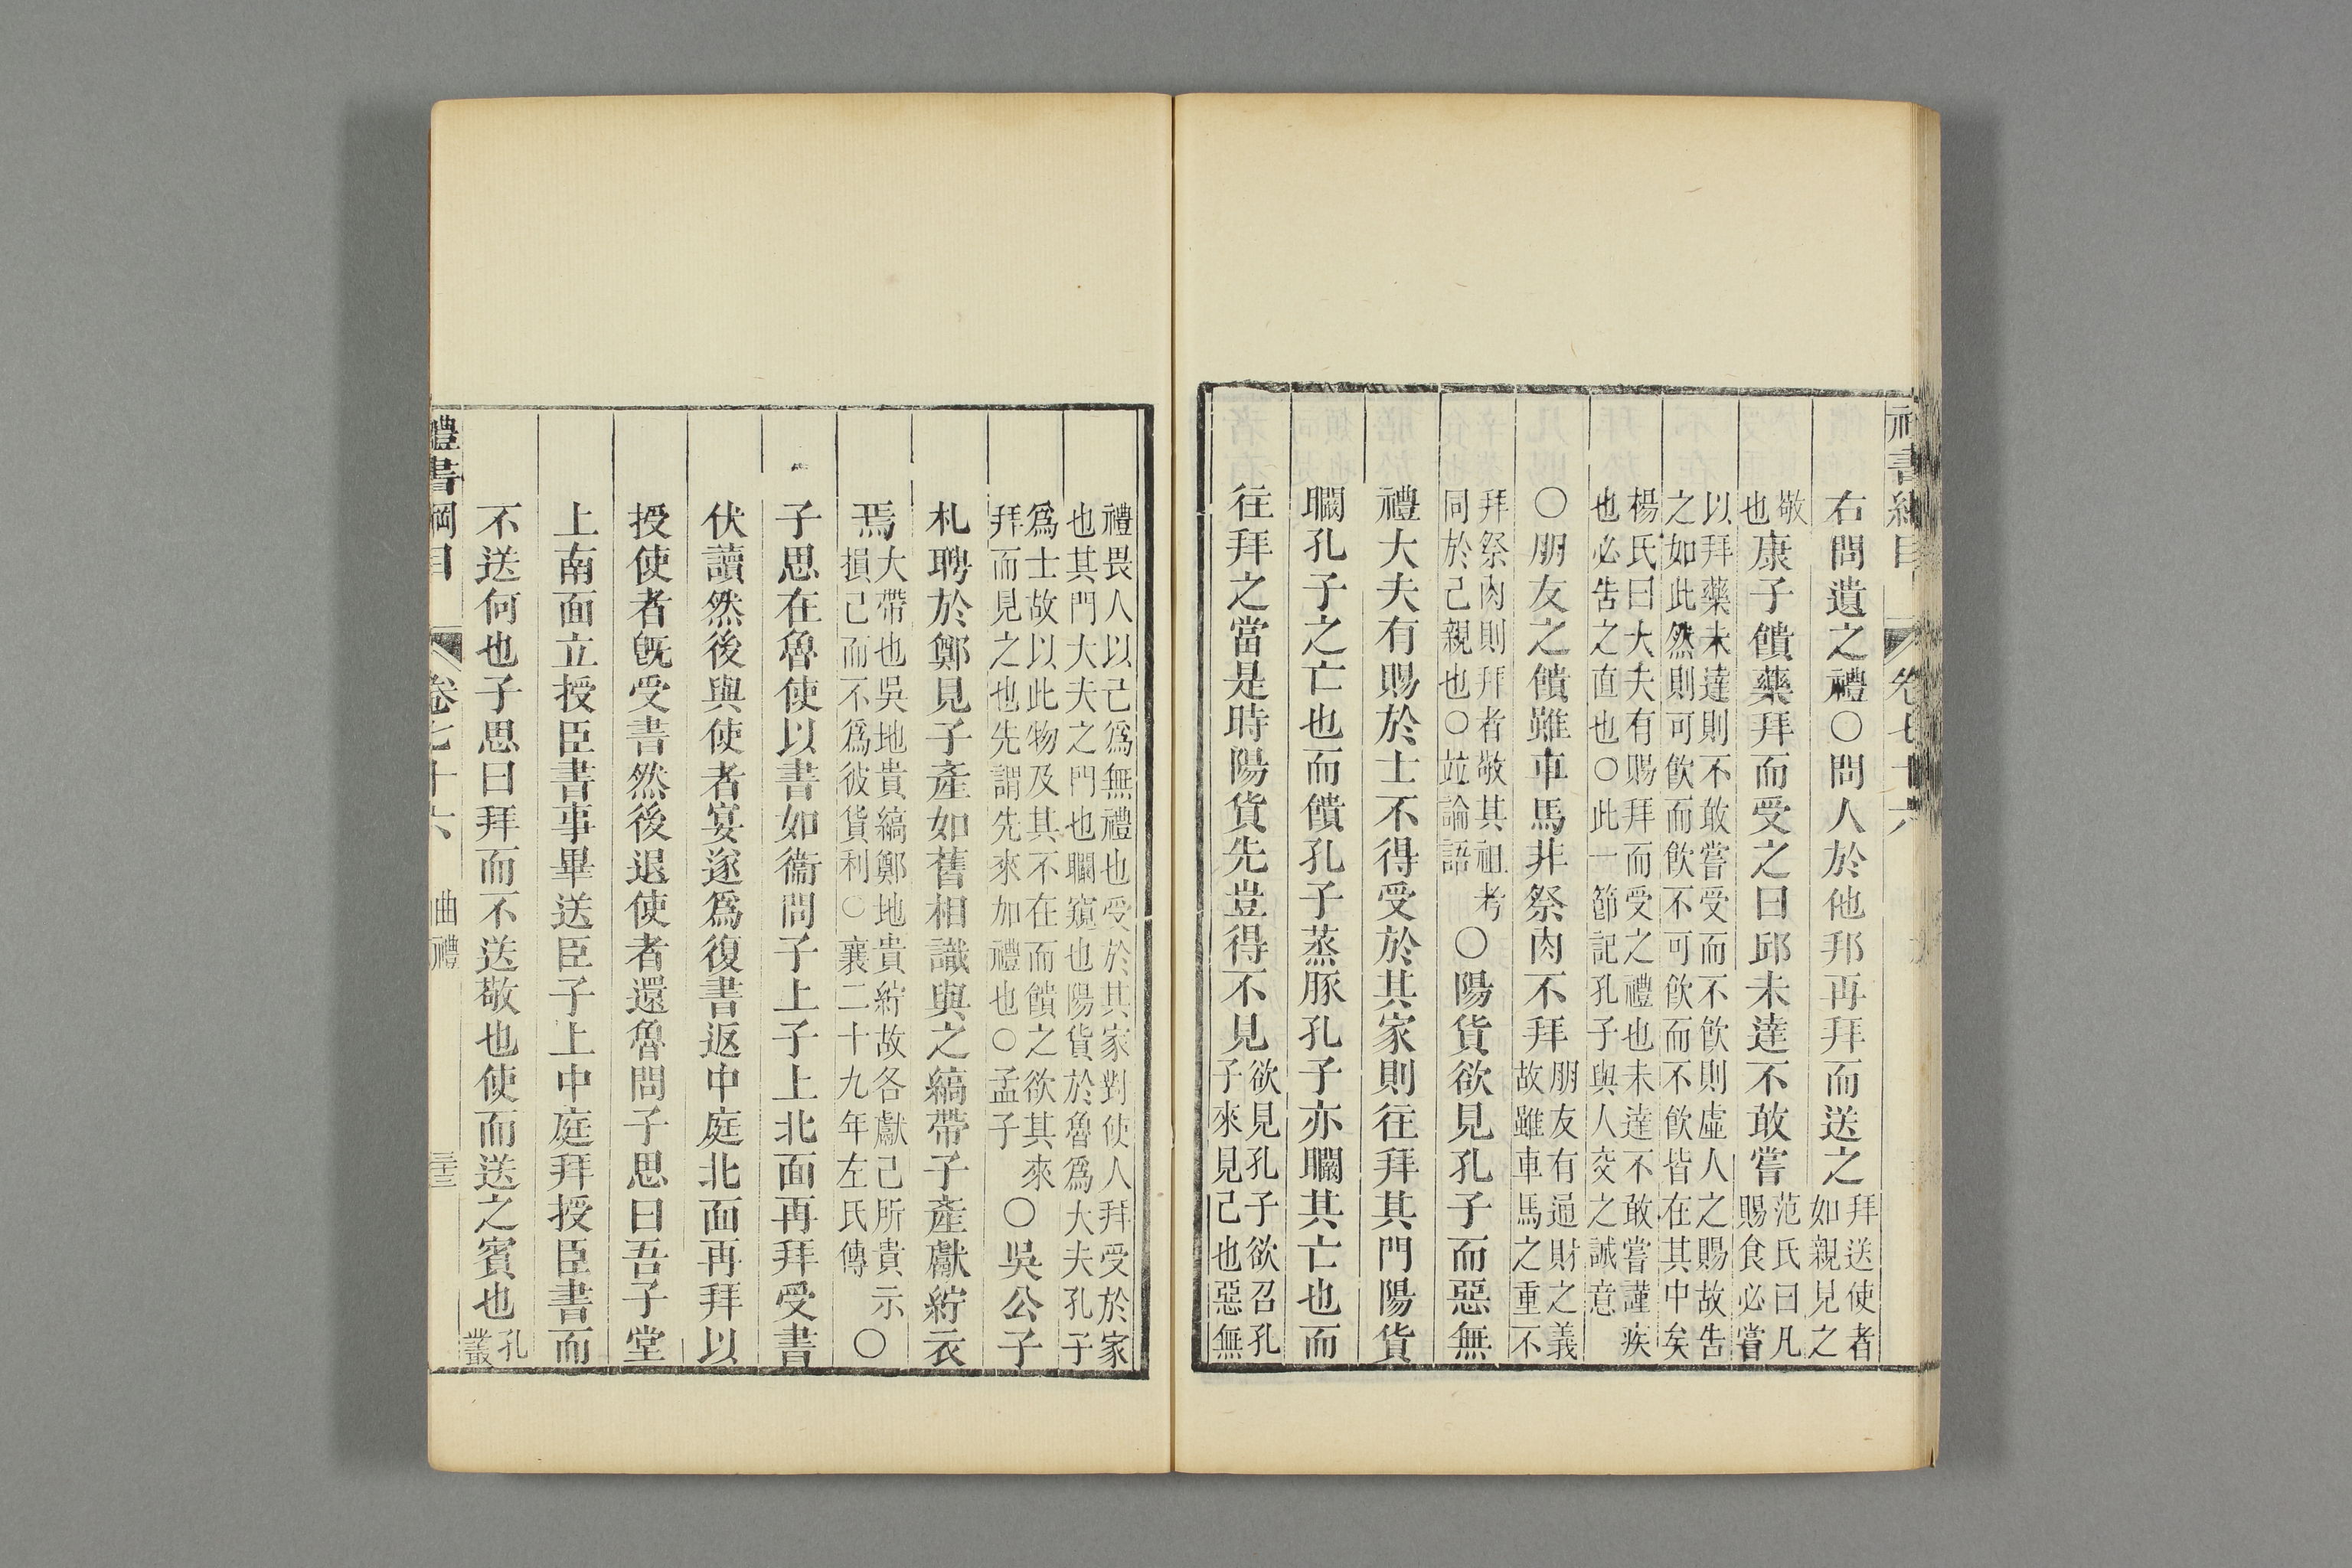 書綱目 卷七十六
右問遺之禮〇問人於他邦再拜而送之拜送使者如親見之
敬也康子饋藥拜而受之曰邱未達不敢嘗范氏曰凡賜食必嘗
以拜藥未達則不敢嘗受而不飲則虛人之賜故告
之如此然則可飲而飲不可飲而不飲皆在其中矣
楊氏曰大夫有賜拜而受之禮也未達不敢嘗謹疾
也必告之直也〇此一節記孔子與人交之誠意
〇朋友之饋雖車馬非祭肉不拜朋友有通財之義故雖車馬之重不
拜祭肉則拜者敬其祖考同於己親也〇竝論語〇陽貨欲見孔子而惡無
禮大夫有賜於士不得受於其家則往拜其門陽貨
矙孔子之亡也而饋孔子蒸豚孔子亦矙其亡也而
往拜之當是時陽貨先豈得不見欲見孔子欲召孔子來見己也惡無
禮畏人以己爲無禮也受於其家對使人拜受於家
也其門大夫之門也矙窺也陽貨於魯爲大夫孔子
爲士故以此物及其不在而饋之欲其來拜而見之也先謂先來加禮也〇孟子〇吳公子
札聘於鄭見子產如舊相識與之縞帶子產獻紵衣
焉大帶也吳地貴縞鄭地貴紵故各獻己所貴示損己而不爲彼貨利〇襄二十九年左氏傳〇
子思在魯使以書如衞問子上子上北面再拜受書
伏讀然後與使者宴遂爲復書返中庭北面再拜以
授使者既受書然後退使者還魯問子思曰吾子堂
上南面立授臣書事畢送臣子上中庭拜授臣書而
不送何也子思曰拜而不送敬也使而送之賓也孔叢
禮書綱目 卷七十六 曲禮 三十三